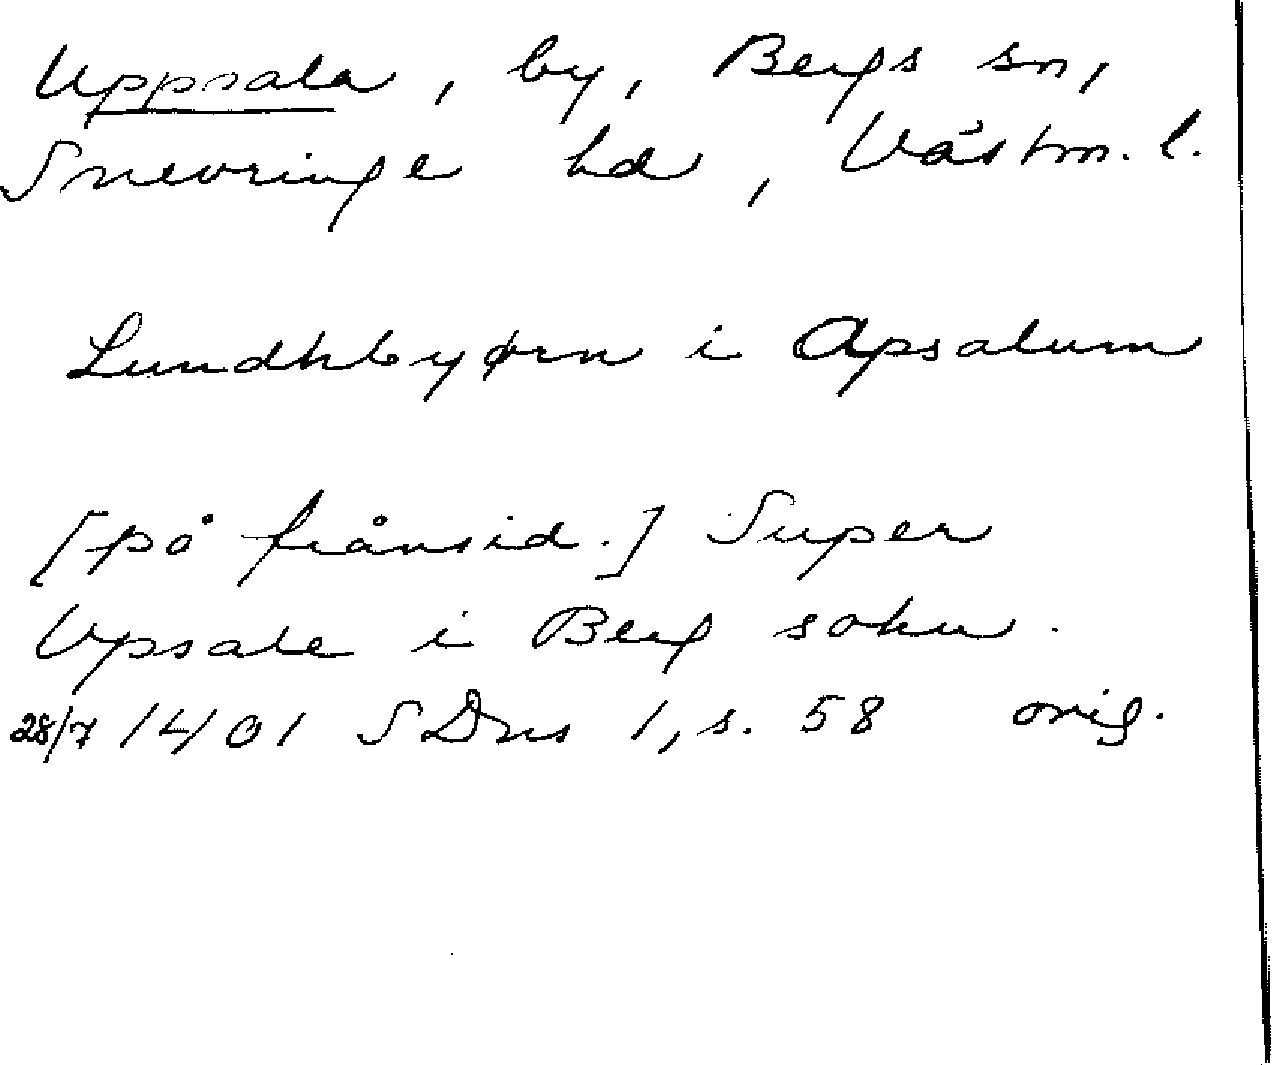 Uppsala, by, Bergs sn,
Snevringe hd, Västm. l.
Lundhbyørn i Apsalum
[på frånsid.] Super
Upsale i Berg sokn.
28/7 1401 SDns 1, s. 58 orig.